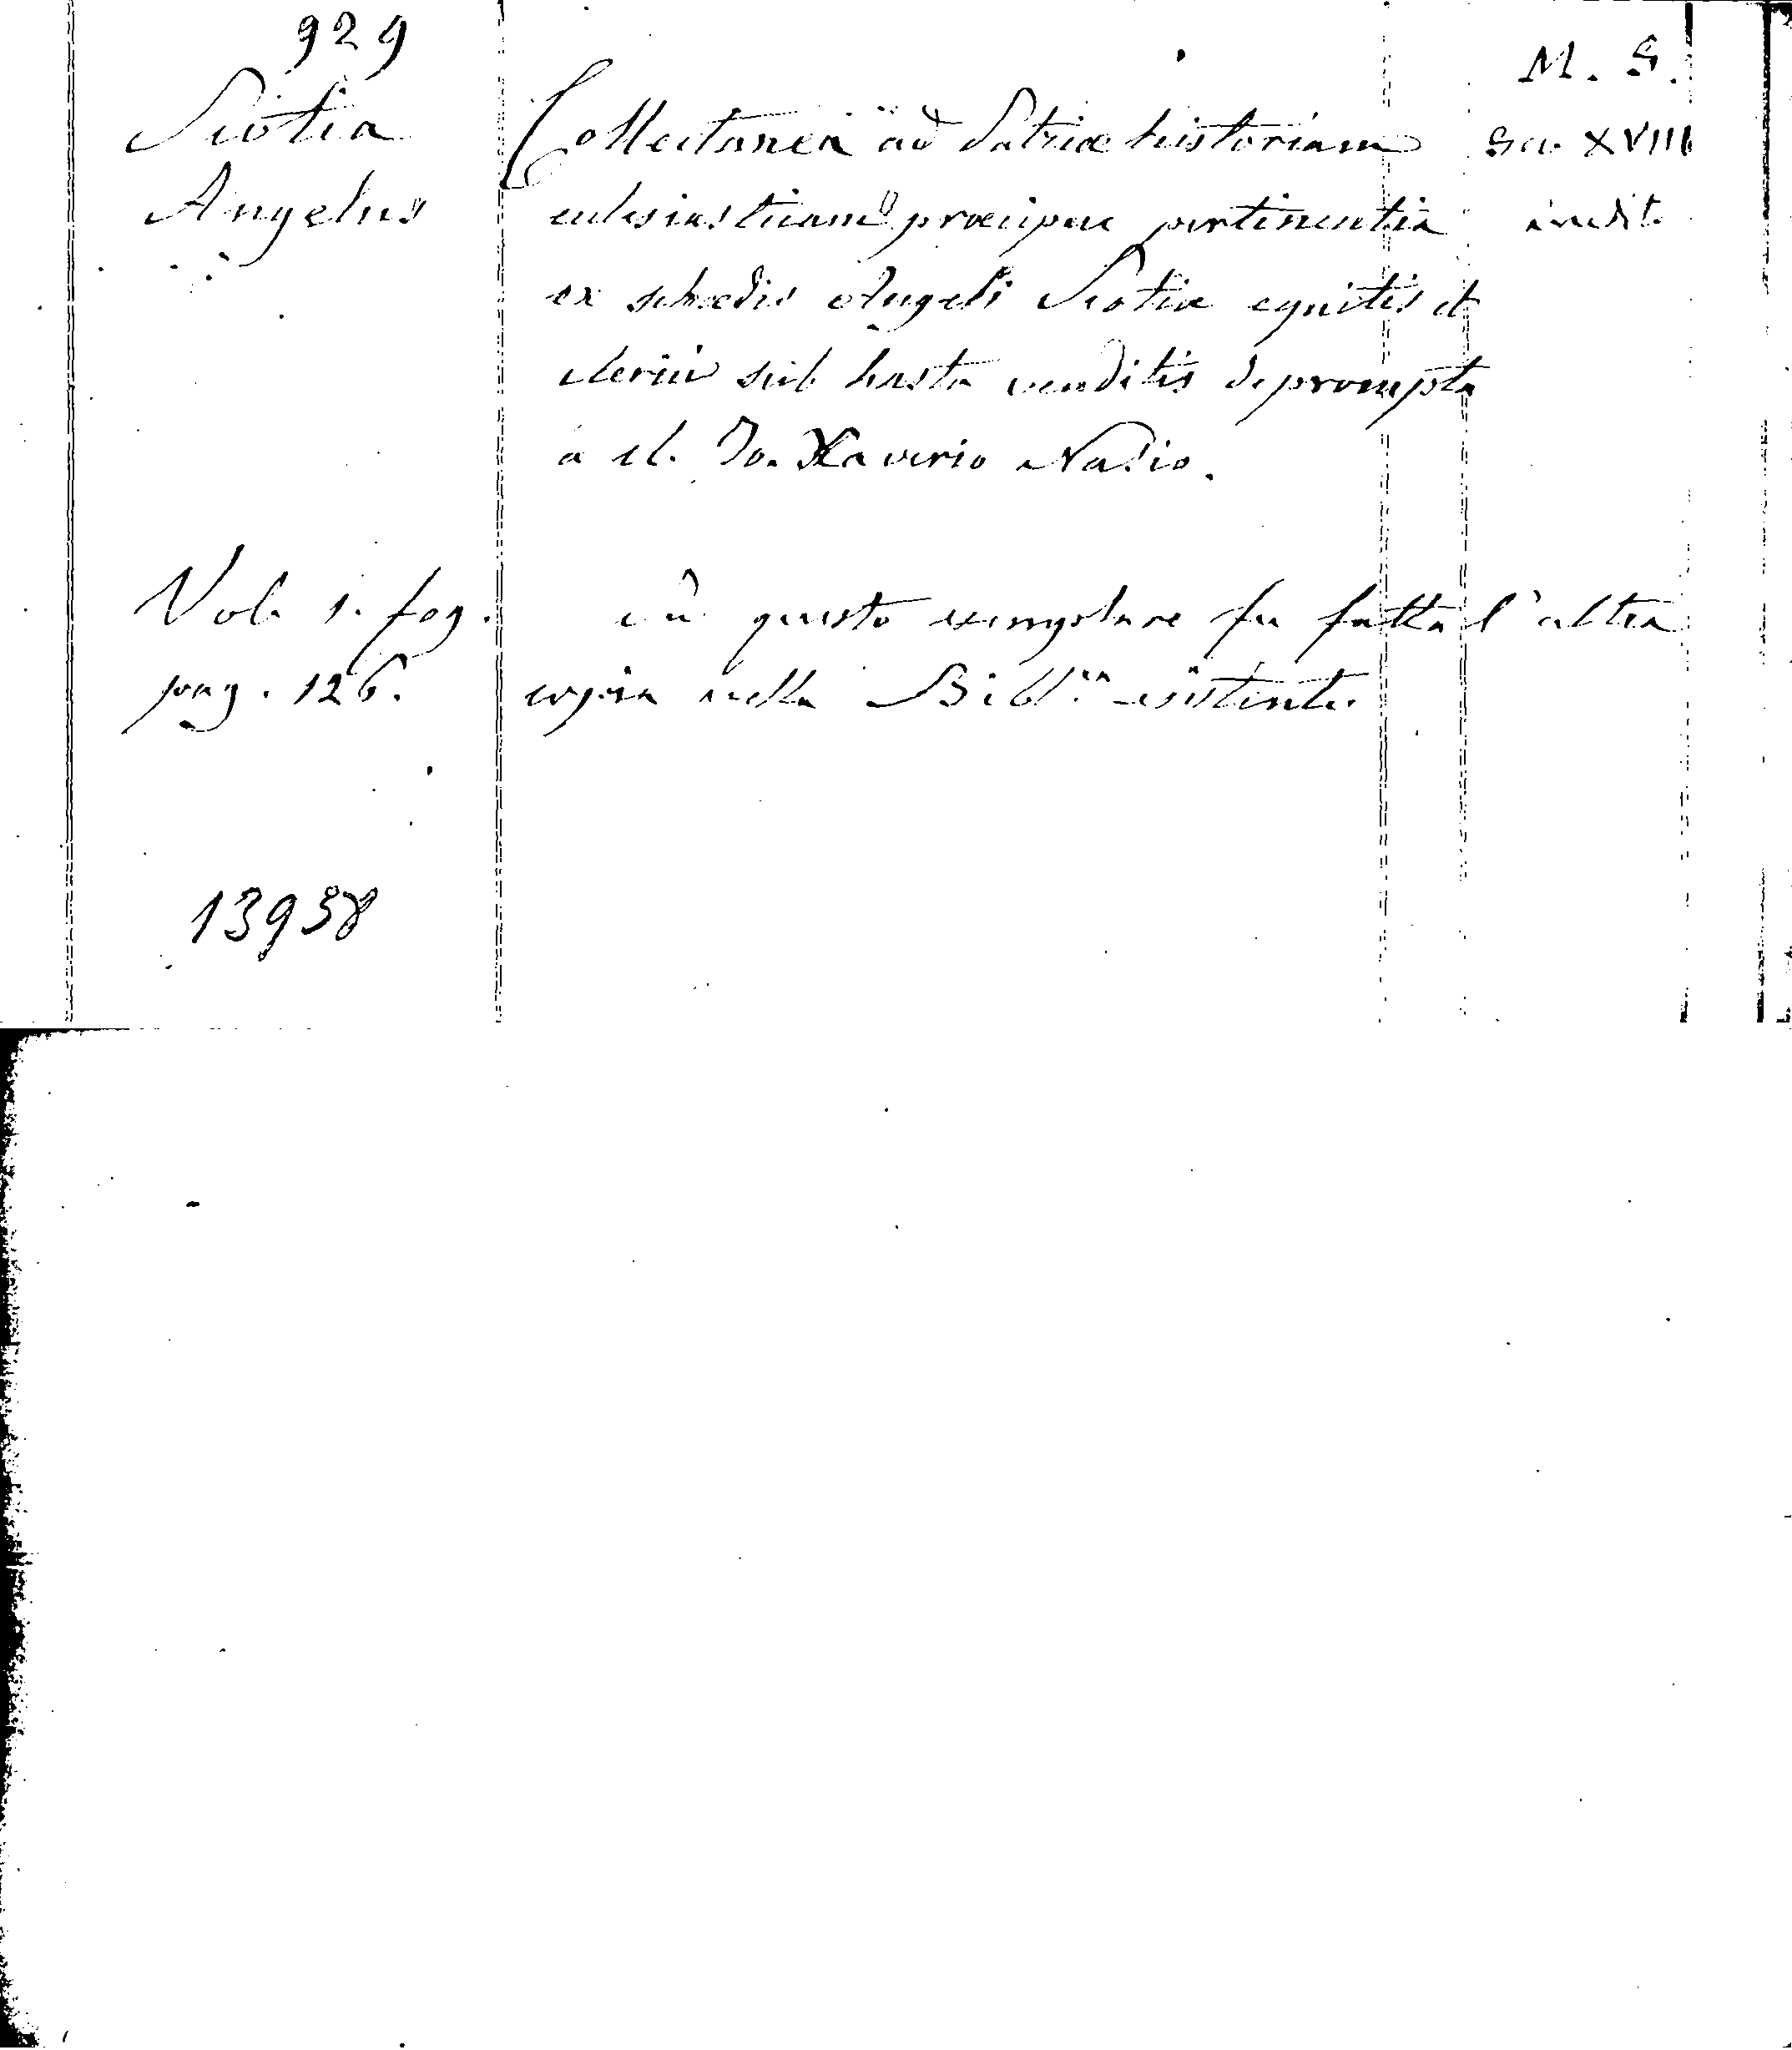 929
Scotia
Angelus
Collectanea ad Patriæ historiam
eclesiasticam præcipue pertinentia
ex schædis Angeli Scotiæ equitis et
clerici sub hasta venditis deprompta
a cl. Jo. Xaverio Nasio.
M. S.
Sec. XVIII
inedit.
Vol. 1. fog.
pag. 126.
questo exemplare fu fatta l'altra
copia nella Bibl.ca esistente.
13958